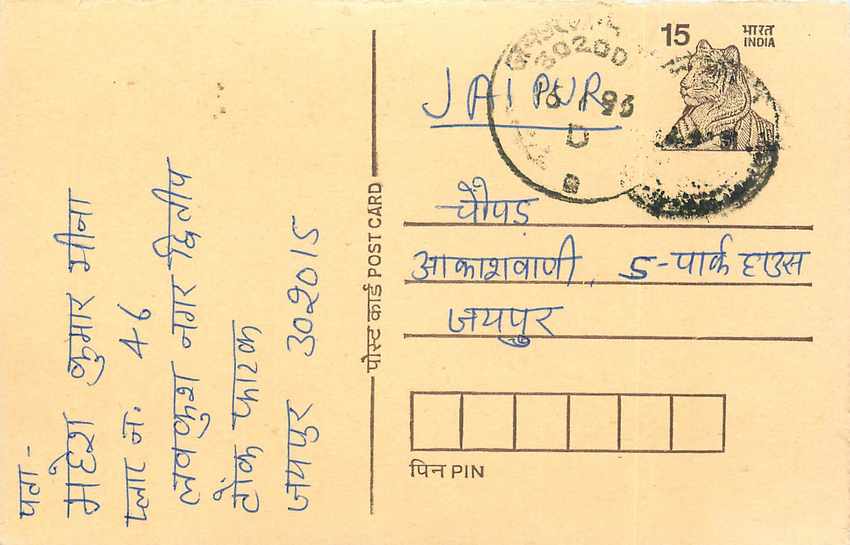 15
भारत
INDIA
30200
JAIPUR
चौपड़
आकाशवाणी, 5-पार्क हाउस
जयपुर
पिन PIN
पोस्ट कार्ड POST CARD
पता -
महेश कुमार मीना
प्लाट नं. 46
लवकुश नगर द्वितीय
टोंक फाटक
जयपुर 302015